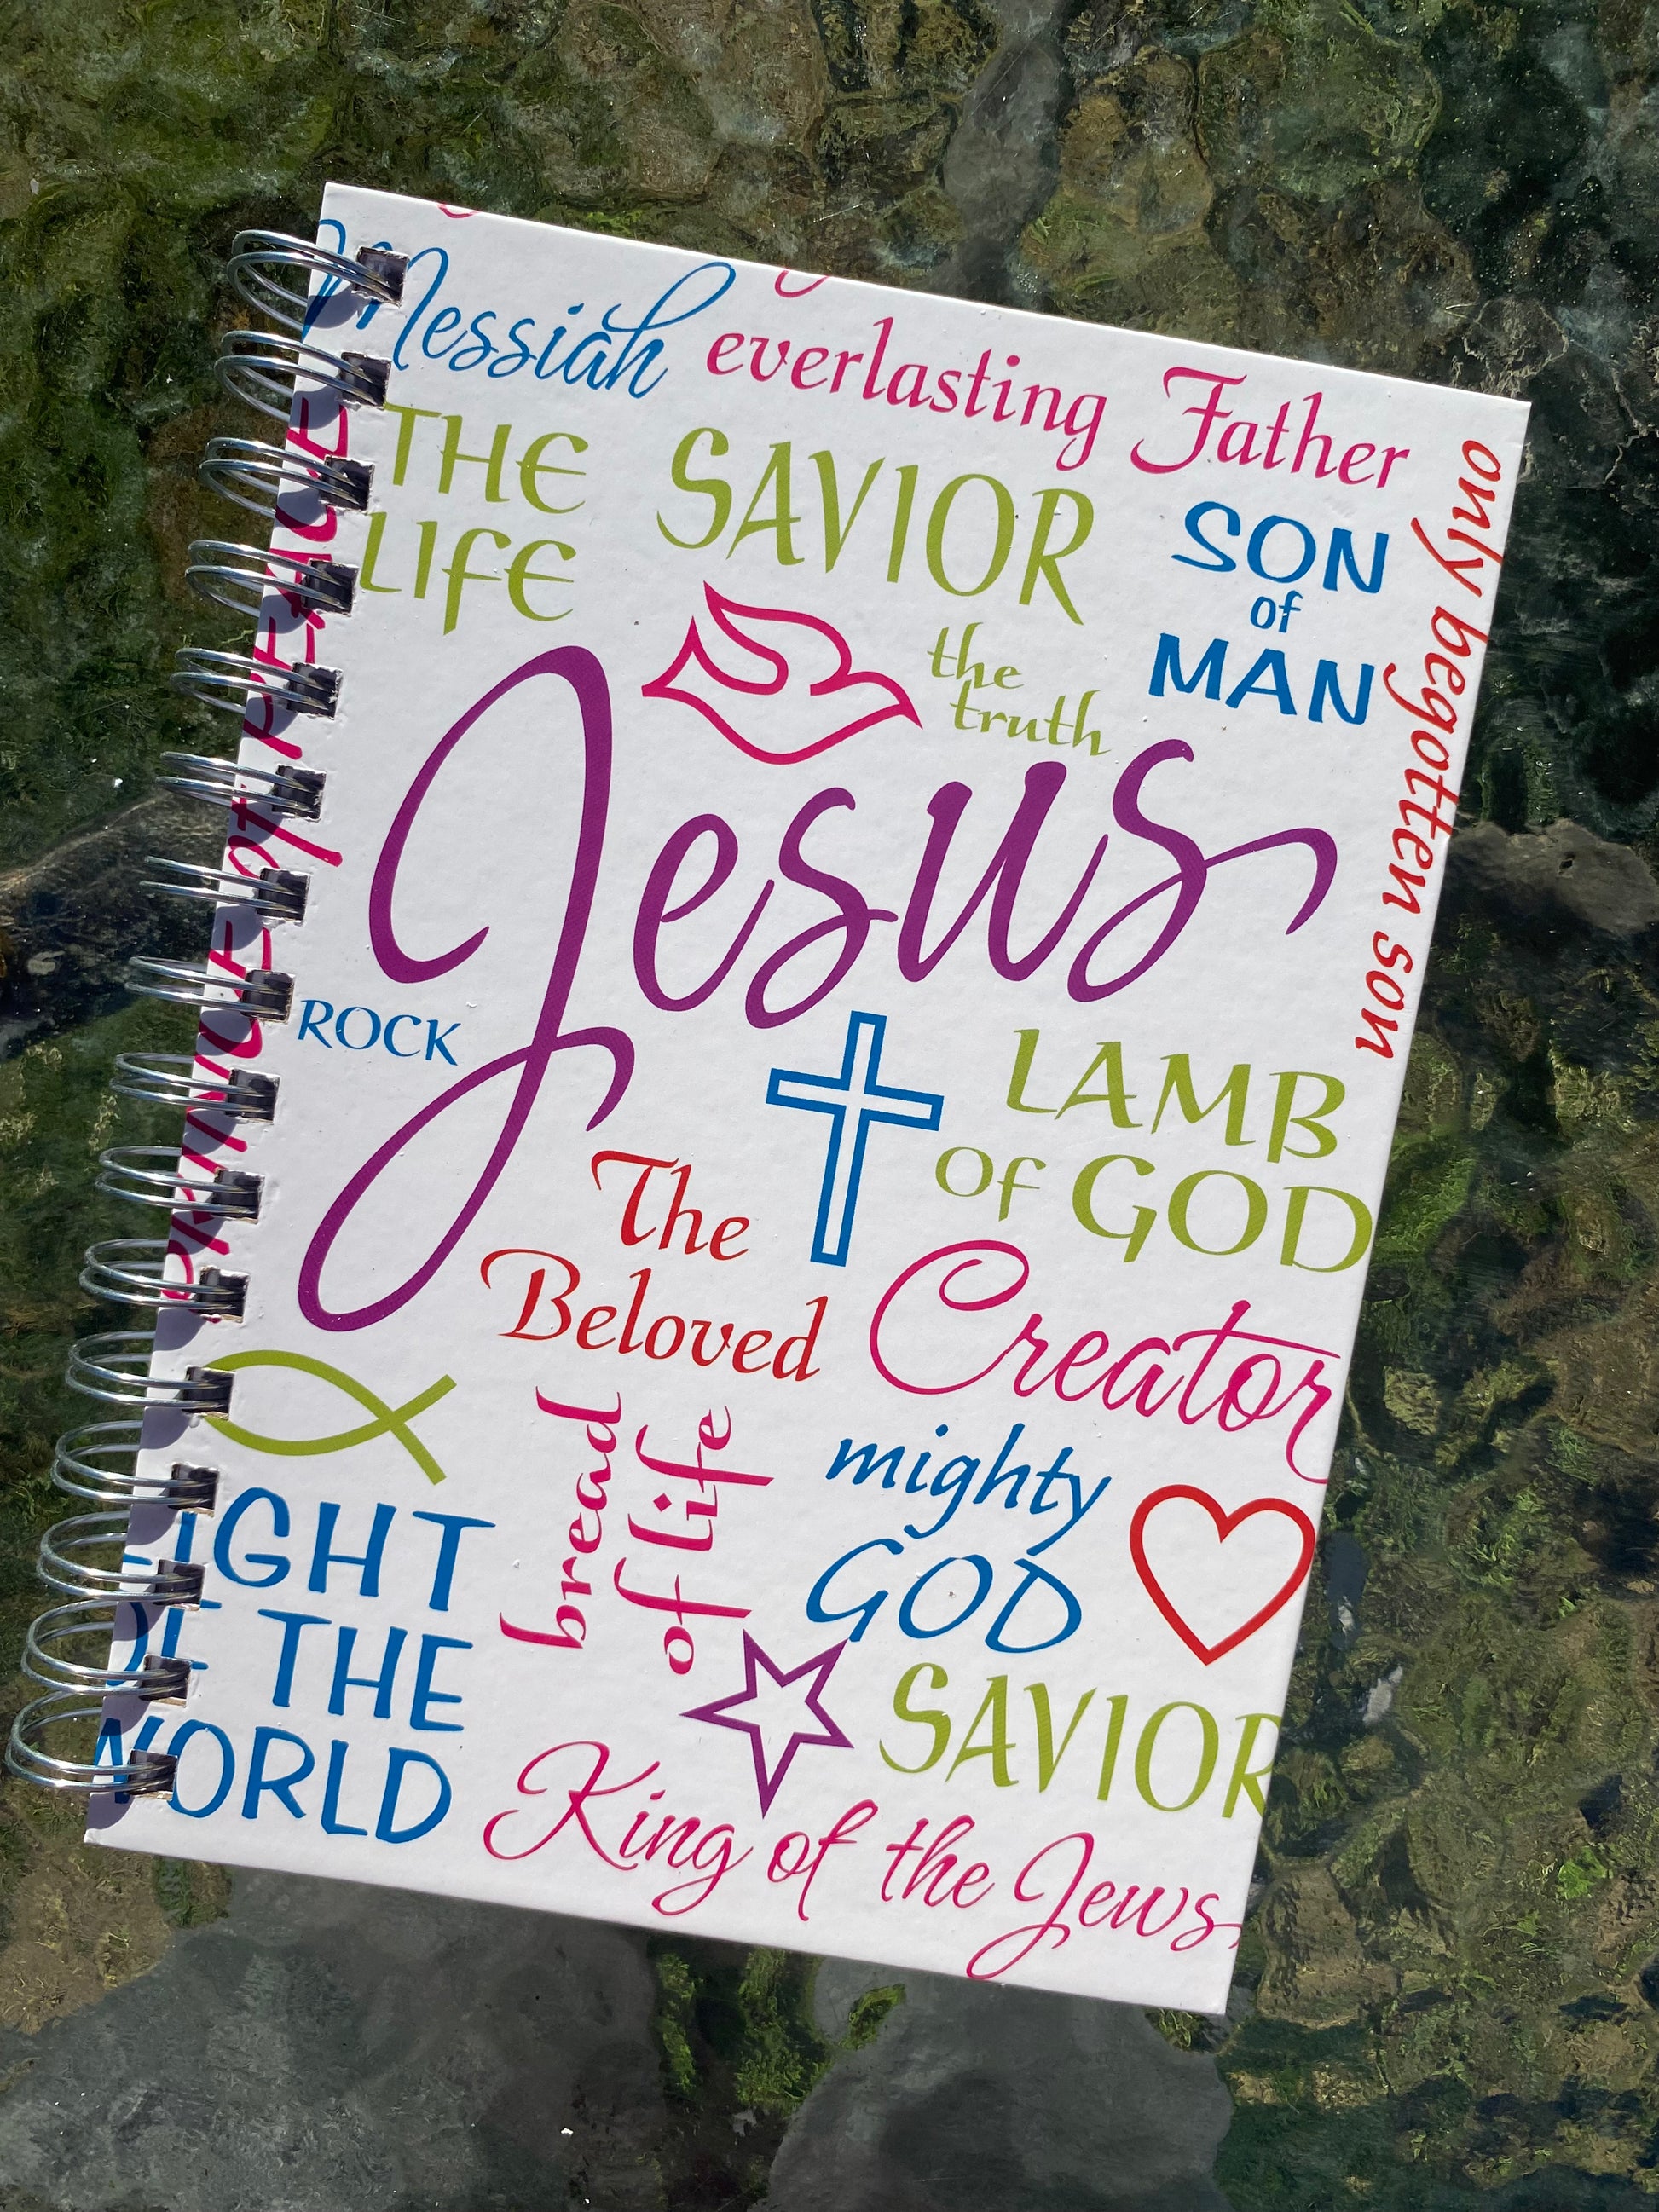 Messiah everlasting Father
THE
LIFE
SAVIOR
SON
of
MAN
only begotten son
the
truth
PRINCE of PEACE
Jesus
ROCK
LAMB
of GOD
The
Beloved
Creator
bread
of life
mighty
GOD
LIGHT
OF THE
WORLD
SAVIOR
King of the Jews